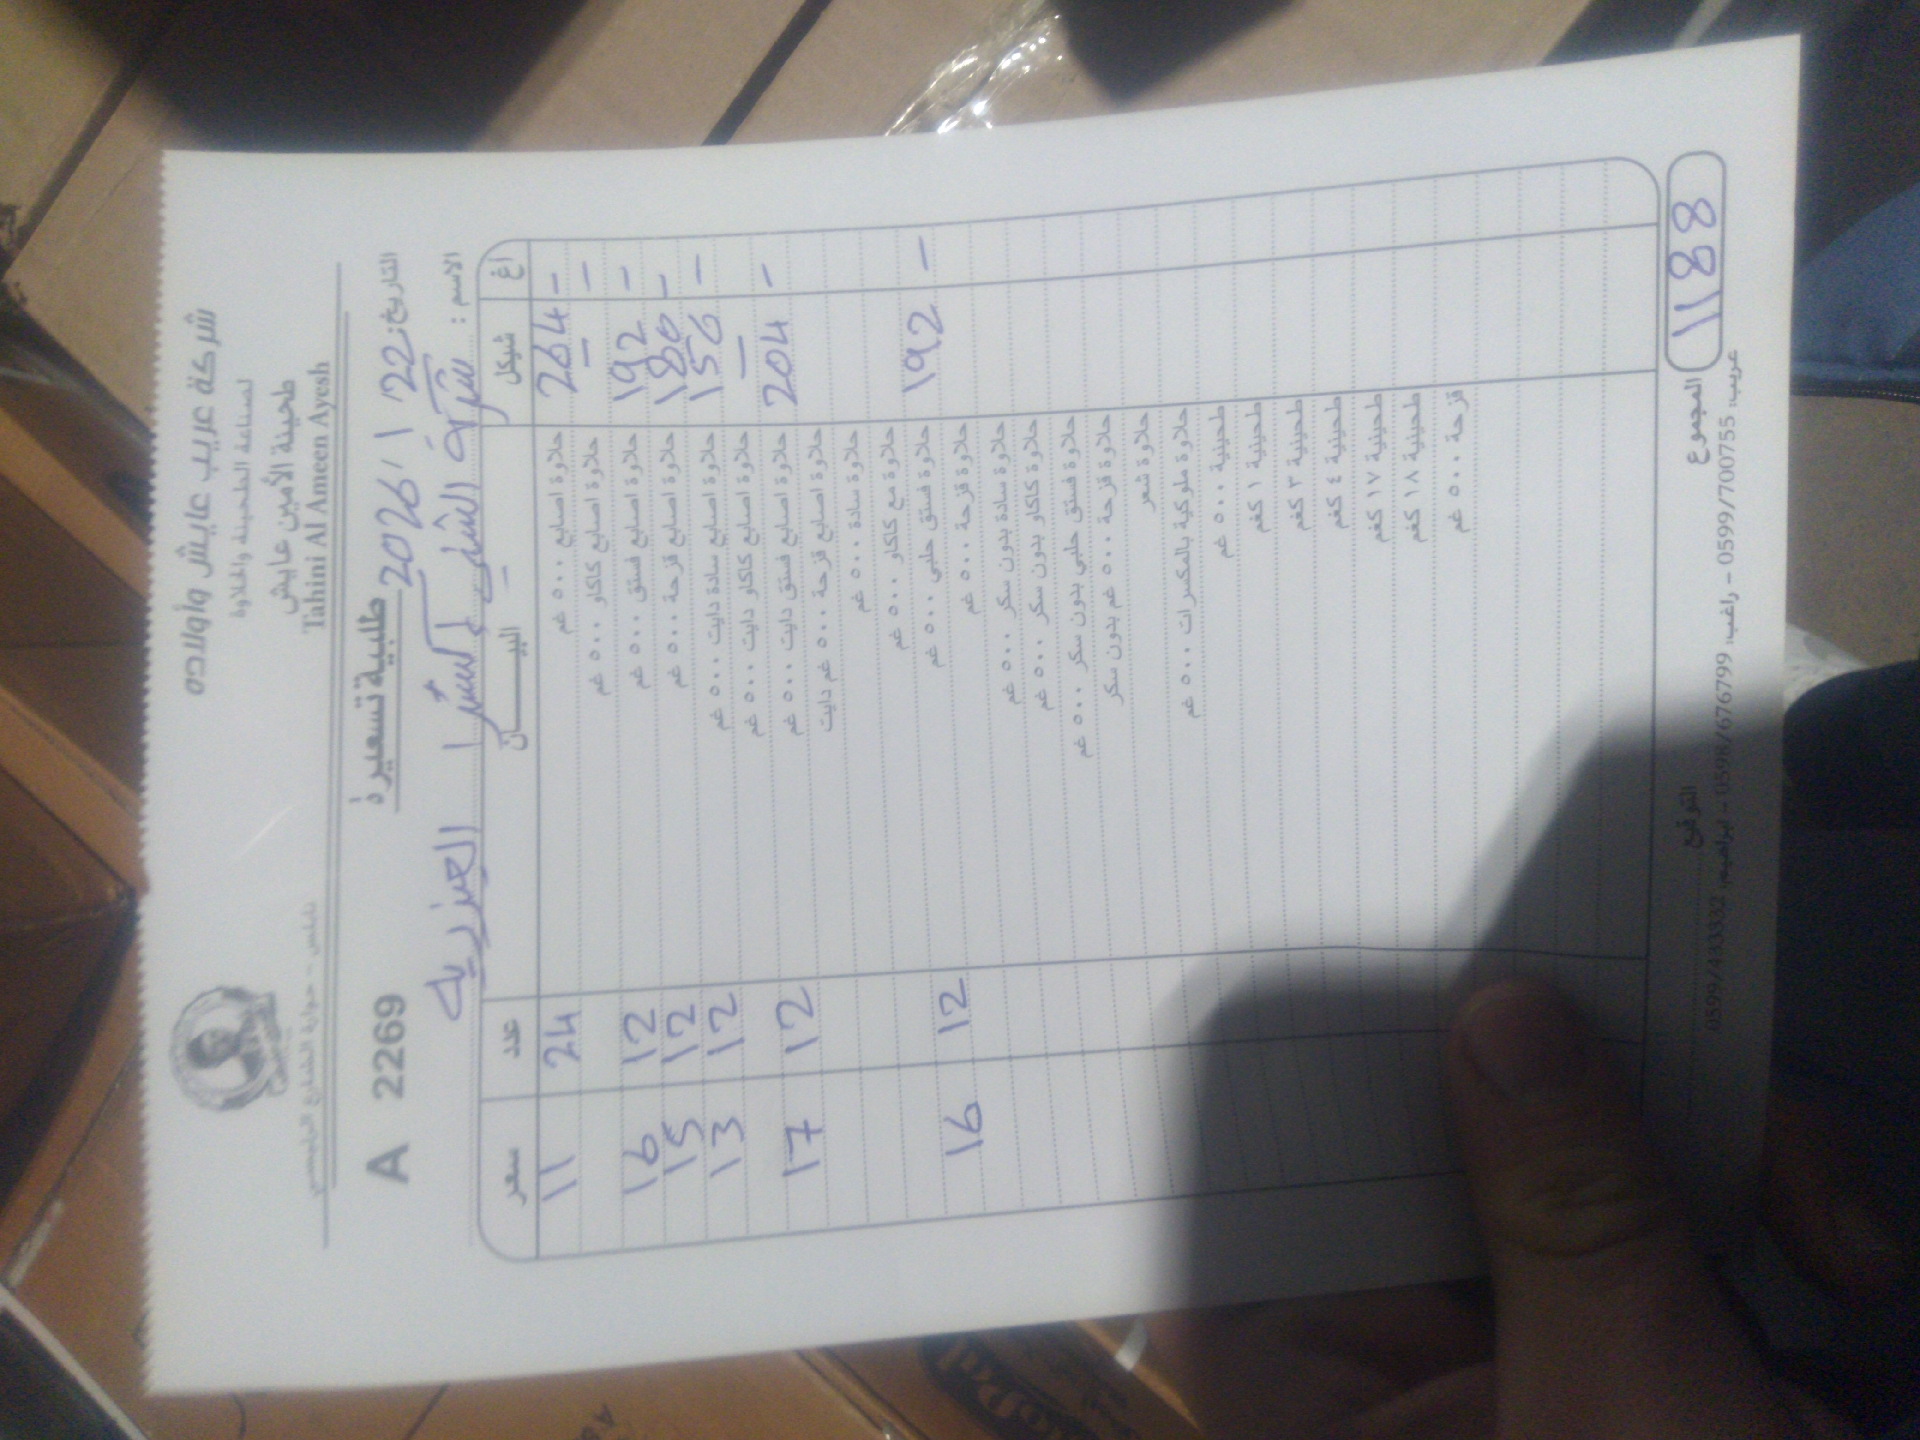 شركة عريب عايش وأولاده
لصناعة الطحينة والحلاوة
طحينة الأمين عايش
Tahini Al Ameen Ayesh
نابلس - حوارة الشارع الرئيسي
A 2269 طلبية تسعيرة التاريخ: 22 / 1 / 2026
الاسم: شركة الشني إكسترا العيزرية
سعر عدد البيــــــان شيكل أغ
11 24 حلاوة اصابع ٥٠٠ غم 264 -
حلاوة اصابع كاكاو ٥٠٠ غم - -
16 12 حلاوة اصابع فستق ٥٠٠ غم 192 -
15 12 حلاوة اصابع قزحة ٥٠٠ غم 180 -
13 12 حلاوة اصابع سادة دايت ٥٠٠ غم 156 -
حلاوة اصابع كاكاو دايت ٥٠٠ غم -
17 12 حلاوة اصابع فستق دايت ٥٠٠ غم 204 -
حلاوة اصابع قزحة ٥٠٠ غم دايت
حلاوة سادة ٥٠٠ غم
حلاوة مع كاكاو ٥٠٠ غم
16 12 حلاوة فستق حلبي ٥٠٠ غم 192 -
حلاوة قزحة ٥٠٠ غم
حلاوة سادة بدون سكر ٥٠٠ غم
حلاوة كاكاو بدون سكر ٥٠٠ غم
حلاوة فستق حلبي بدون سكر ٥٠٠ غم
حلاوة قزحة ٥٠٠ غم بدون سكر
حلاوة شعر
حلاوة ملوكية بالمكسرات ٥٠٠ غم
طحينية ٥٠٠ غم
طحينية ١ كغم
طحينية ٣ كغم
طحينية ٤ كغم
طحينية ١٧ كغم
طحينية ١٨ كغم
قزحة ٥٠٠ غم
التوقيع المجموع 1188
عريب: 0599/700755 - راغب: 0598/676799 - ابراهيم: 0599/433332